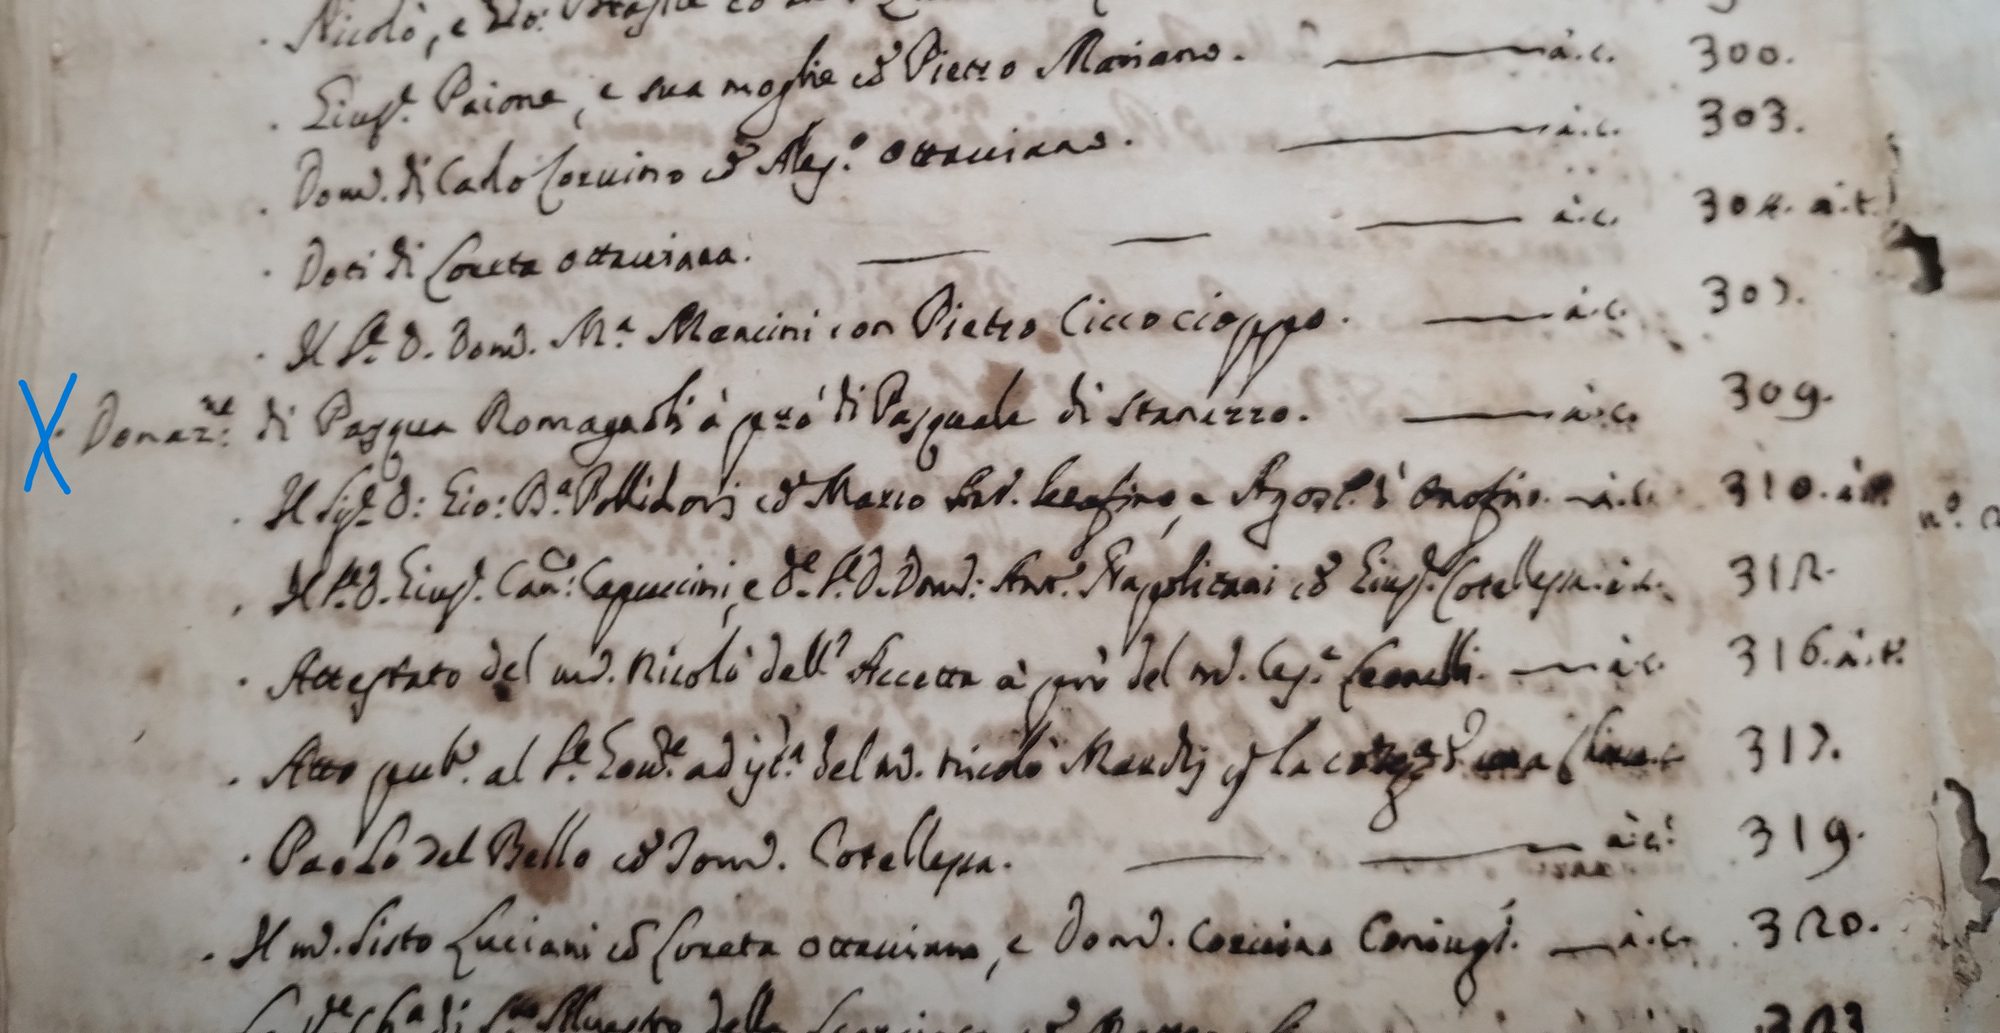 Nicolò, e Gio:
Gius.e Paione, e sua moglie cō Pietro Mariano. à.c. 300.
Dom.o di Carlo Corvino cō Aless.o Ottaviano. à.c. 303.
Doti di Loreta Ottaviana. à.c. 304. à.t.
Il S.r D. Dom.o M.a Mancini con Pietro Ciccocioppo. à.c. 307.
Donaz.ne di Pasqua Romagnoli à prò di Pasquale di Stanizzo. à.c. 309.
Il Sig.r D: Gio: B.a Pollidori cō Marco e d'Onofrio. à.c. 310. à.t.
Il S.r D. Gius.e Can.co: Capuccini, e D. Dom.o: Ant.o Napolitani cō Gius.e Cotellessa. à.c. 312.
Attestato del m.o Nicolò dell' Accetta à prò del m.o Ces.e à.c. 316. à.t.
Atto pub.o al S.r ad ist.a del m.o Nicolò la una 317.
Paolo del Bello cō Dom.o Cotellessa. à.c. 319.
Il m.o Sisto Luciani cō Loreta Ottaviana, e Dom.o Corvino Coniugi. à.c. 320.
della